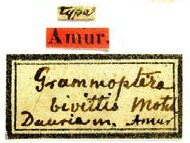 Type
Amur.
Grammoptera
bivittis Motsch
Dauria m. Amur